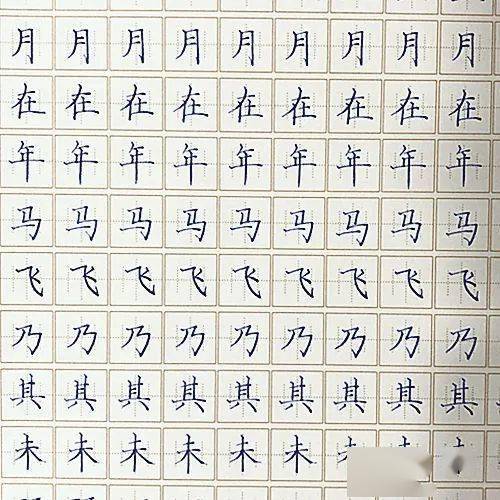 月月月月月月月月月
在在在在在在在在在
年年年年年年年年年
马马马马马马马马马
飞飞飞飞飞飞飞飞飞
乃乃乃乃乃乃乃乃乃
其其其其其其其其其
未未未未未未